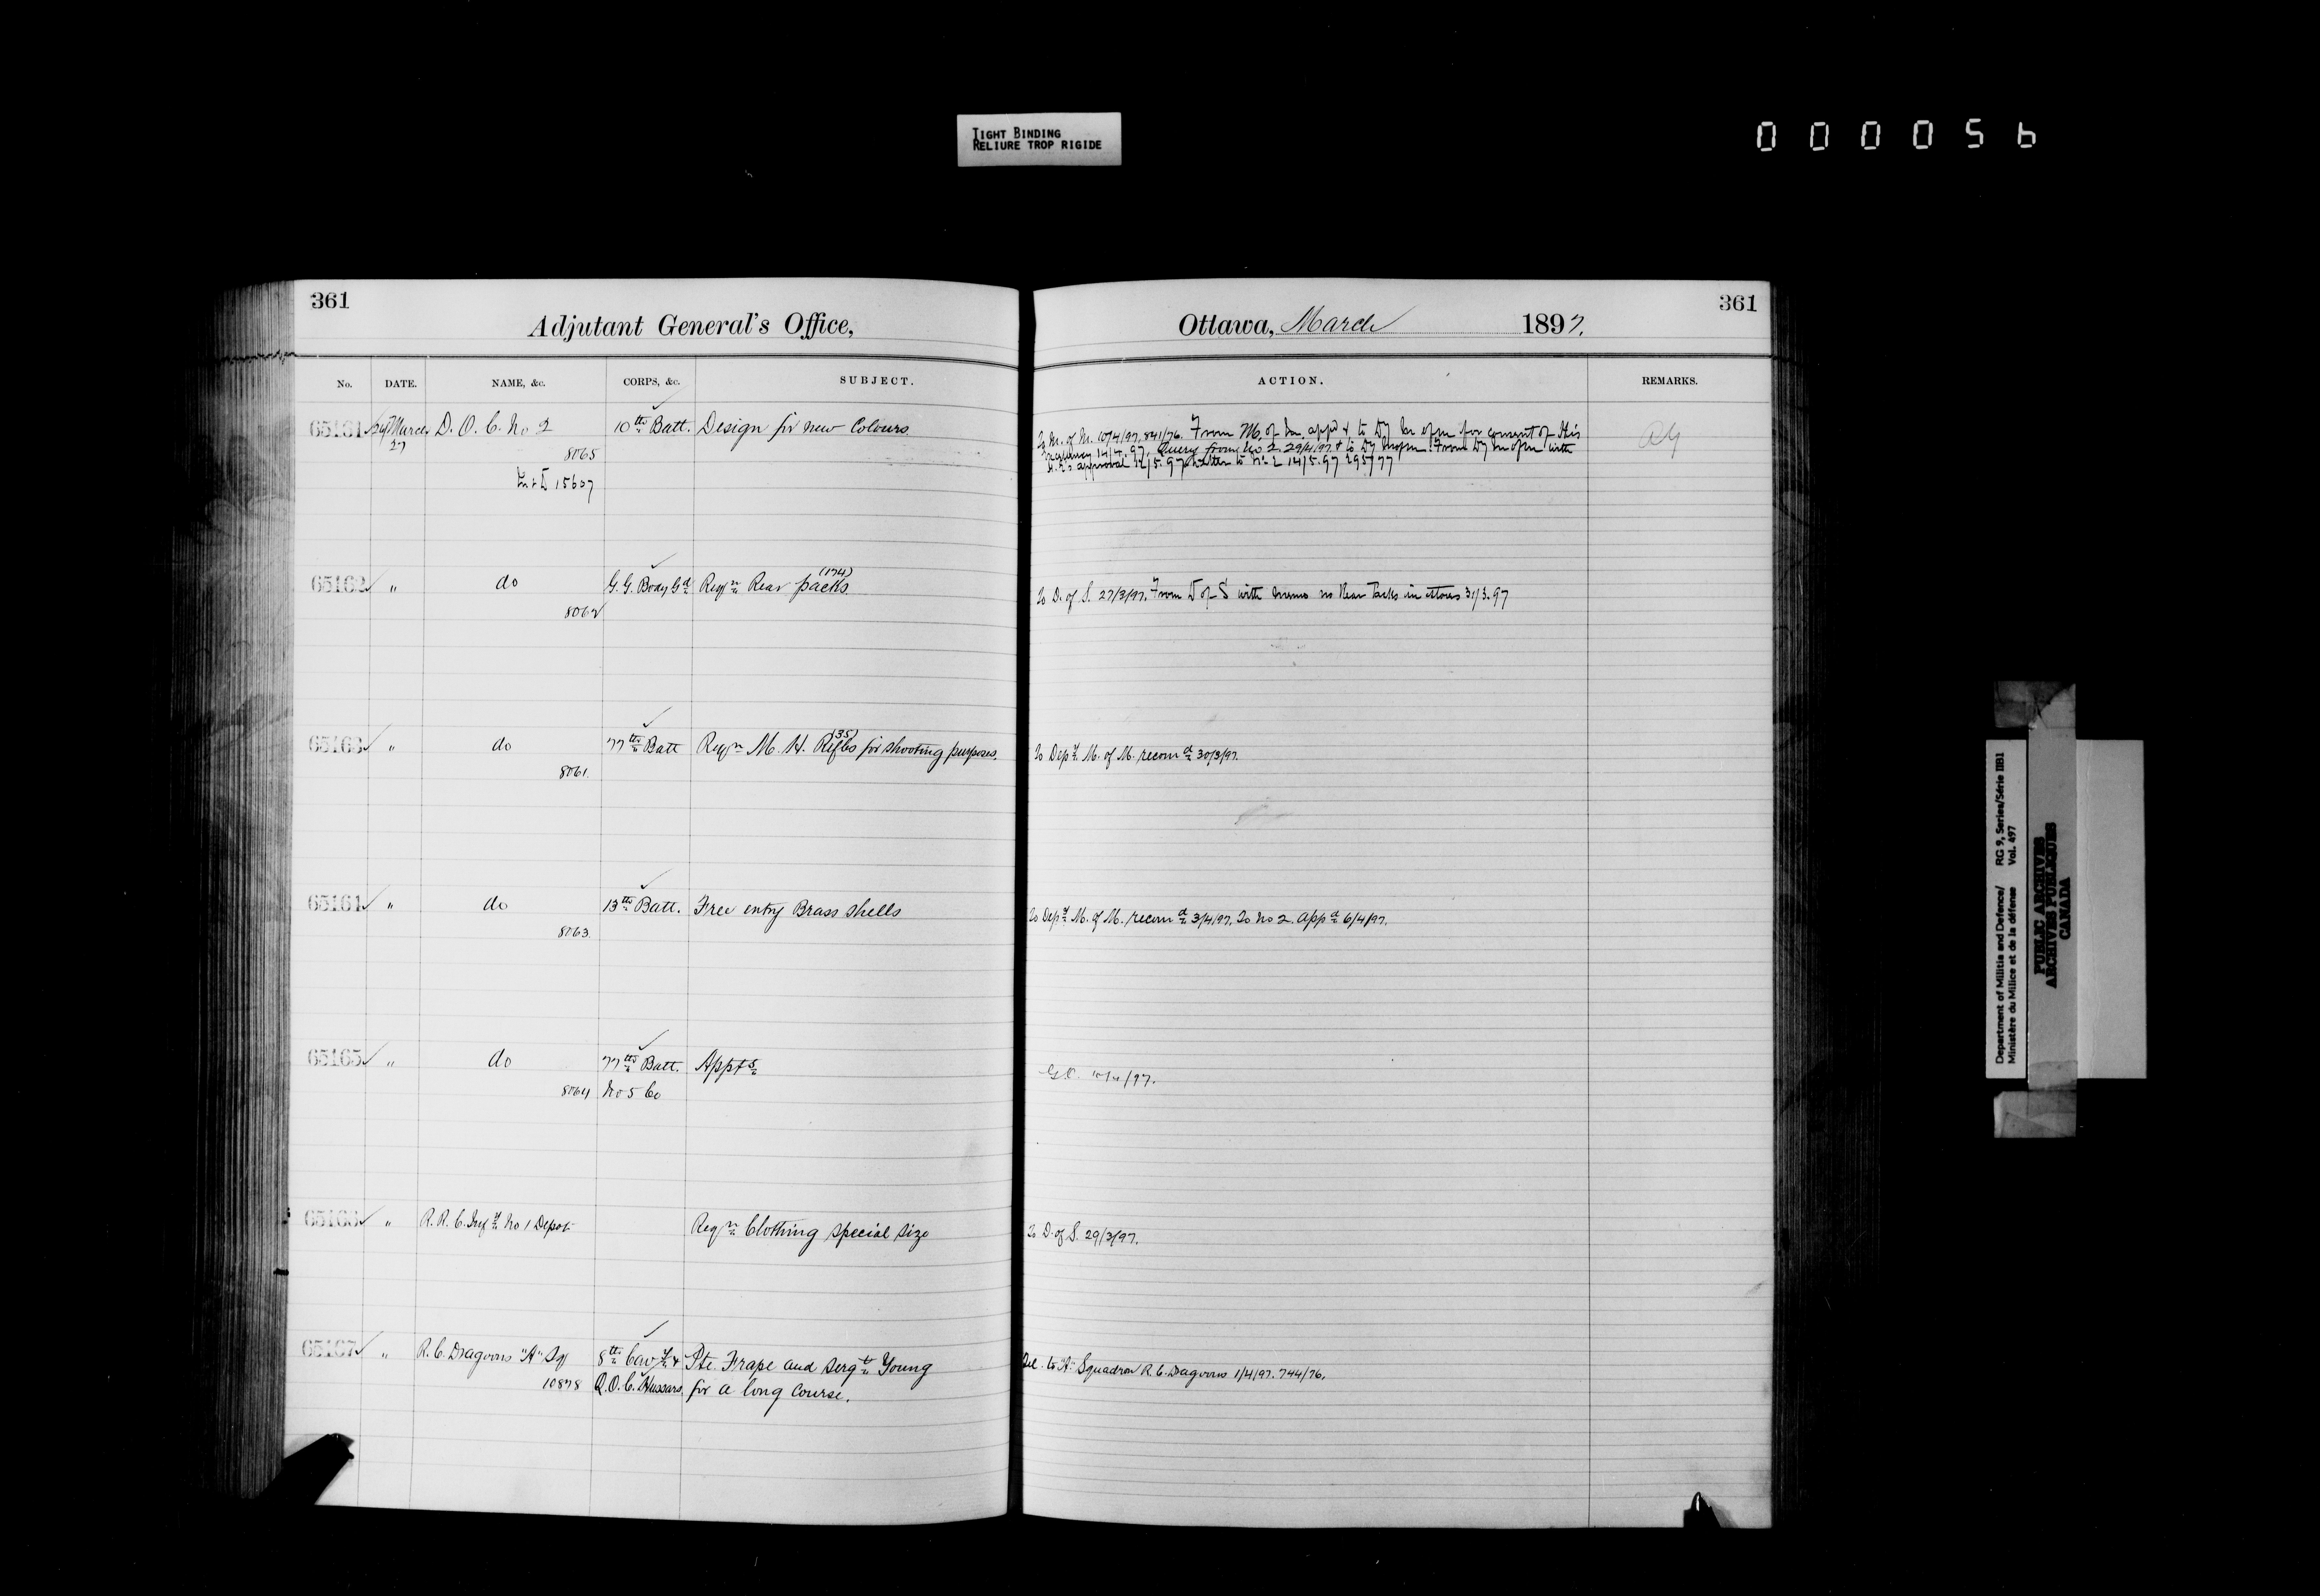 TIGHT BINDING
RELIURE TROP RIGIDE
000056
361
Adjutant General's Office,
No. DATE. NAME, &c. CORPS, &c. SUBJECT.
65161 March D. O. C. No 2 10th Batt. Design for new Colours
27
8065
15607
65162 " do G. G. Body Gd Reqn Rear packs (174)
8062
65163 " do 77th Batt Reqn M. H. Rifles (35) for shooting purposes.
8061.
65164 " do 13th Batt. Free entry Brass shells
8063.
65165 " do 77th Batt. Appts
8064 No 5 Co
65166 " R. R. C. Infy No 1 Depot Reqn Clothing special size
65167 " R. C. Dragoons "A" Sq 8th Cavy & Pte. Frape and Sergt Young
10878 Q. O. C. Hussars for a long course.
361
Ottawa, March 1897.
ACTION. REMARKS.
To M. of M. 10/4/97. 841/76. From M. of M. appd & to for consent of His
Excellency 14/4.97. Query from No 2. 29/4/97 & to From with
H. E's approval 12/5.97 Letter to No 2 14/5.97 295/77
To D. of S. 27/3/97. From D of S with memo no Rear Packs in stores 31/3.97
To Depy. M. of M. recomd 30/3/97.
To Depy. M. of M. recomd 3/4/97. To No 2. appd 6/4/97.
G.O. /97.
To D. of S. 29/3/97.
to "A" Squadron R. C. Dragoons 1/4/97. 744/76.
Department of Militia and Defence/ RG 9, Series/Série IIB1
Ministère du Milice et de la défense Vol. 497
PUBLIC ARCHIVES
ARCHIVES PUBLIQUES
CANADA